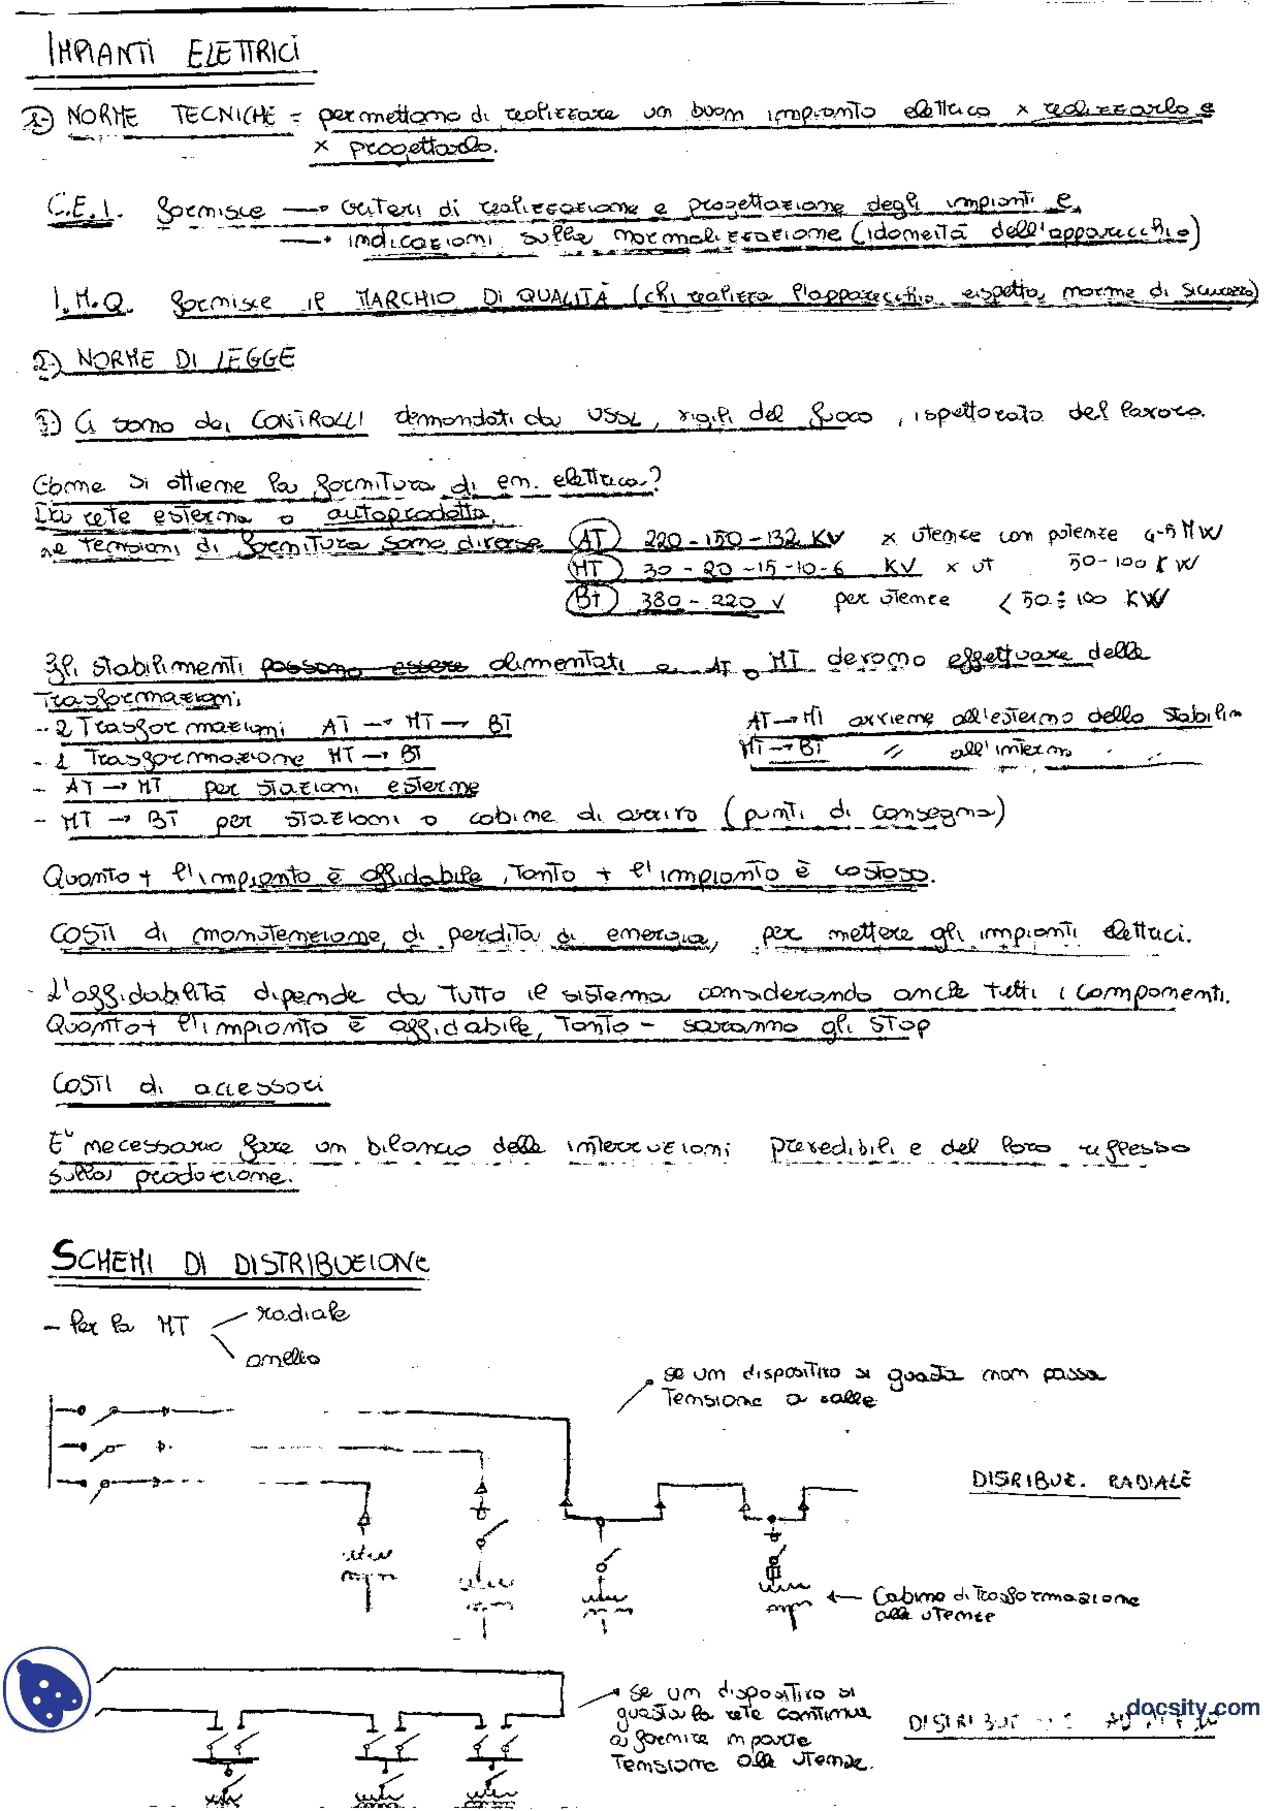 IMPIANTI ELETTRICI
1) NORME TECNICHE = permettono di realizzare un buon impianto elettrico x realizzarlo e
x progettarlo.
C.E.I. fornisce → criteri di realizzazione e progettazione degli impianti e,
→ indicazioni sulla normalizzazione (idoneità dell'apparecchio)
I.M.Q. fornisce il MARCHIO DI QUALITÀ (chi realizza l'apparecchio rispetta norme di sicurezza)
2) NORME DI LEGGE
3) Ci sono dei CONTROLLI demandati da USSL, vigili del fuoco, ispettorato del lavoro.
Come si ottiene la fornitura di en. elettrica?
Da rete esterna o autoprodotta.
Le tensioni di fornitura sono diverse AT 220-150-132 KV x utenze con potenze 4-5 MW
MT 30-20-15-10-6 KV x ut 50-100 KW
BT 380-220 V per utenze < 50÷100 KW
Gli stabilimenti possono essere alimentati a AT o MT devono effettuare delle
Trasformazioni
- 2 Trasformazioni AT → MT → BT
AT → MT avviene all'esterno dello stabilim
- 1 Trasformazione MT → BT
MT → BT " all'interno
- AT → MT per stazioni esterne
- MT → BT per stazioni o cabine di arrivo (punti di consegna)
Quanto + l'impianto è affidabile, Tanto + l'impianto è costoso.
COSTI di manutenzione, di perdita di energia, per mettere gli impianti elettrici.
L'affidabilità dipende da tutto il sistema considerando anche tutti i componenti.
Quanto + l'impianto è affidabile, Tanto - saranno gli STOP
COSTI di accessori
E' necessario fare un bilancio delle interruzioni prevedibili e del loro riflesso
sulla produzione.
SCHEMI DI DISTRIBUZIONE
- Per la MT radiale
anello
se un dispositivo si guasta non passa
Tensione a valle
DISRIBUZ. RADIALE
← Cabina di Trasformazione
alle utenze
se un dispositivo si
guasta la rete continua
a fornire in parte
Tensione alle utenze.
docsity.com